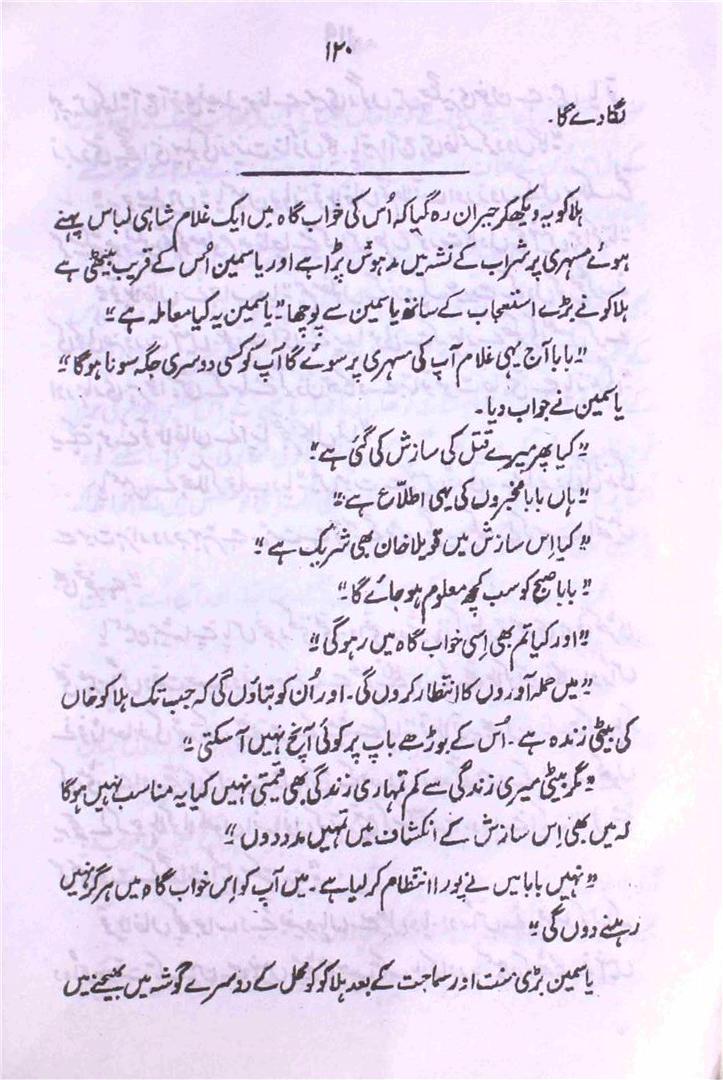 ۱۲۰
لگا دے گا۔
ہلاکو یہ دیکھ کر حیران رہ گیا کہ اُس کی خواب گاہ میں ایک غلام شاہی لباس پہنے
ہوئے مسہری پر شراب کے نشہ میں مدہوش پڑا ہے اور یاسمین اُس کے قریب بیٹھی ہے
ہلاکو نے بڑے استعجاب کے ساتھ یاسمین سے پوچھا "یاسمین یہ کیا معاملہ ہے"
"بابا آج یہی غلام آپ کی مسہری پر سوئے گا آپ کو کسی دوسری جگہ سونا ہوگا"
یاسمین نے جواب دیا۔
"کیا پھر میرے قتل کی سازش کی گئی ہے"
"ہاں بابا مخبروں کی یہی اطلاّع ہے"
"کیا اِس سازش میں قویلا خان بھی شریک ہے"
"بابا صبح کو سب کچھ معلوم ہو جائے گا۔"
"اور کیا تم بھی اِسی خواب گاہ میں رہو گی"
"میں حملہ آوروں کا انتظار کروں گی۔ اور اُن کو بتاؤں گی کہ جب تک ہلاکو خاں
کی بیٹی زندہ ہے۔ اُس کے بوڑھے باپ پر کوئی آنچ نہیں آ سکتی"
"مگر بیٹی میری زندگی سے کم تمہاری زندگی بھی قیمتی نہیں کیا یہ مناسب نہیں ہوگا
کہ میں بھی اِس سازش کے انکشاف میں تمہیں مدد دوں"
"نہیں بابا میں نے پورا انتظام کر لیا ہے۔ میں آپ کو اِس خواب گاہ میں ہرگز نہیں
رہنے دوں گی"
یاسمین بڑی منت اور سماجت کے بعد ہلاکو کو محل کے دوسرے گوشہ میں بھیجنے میں